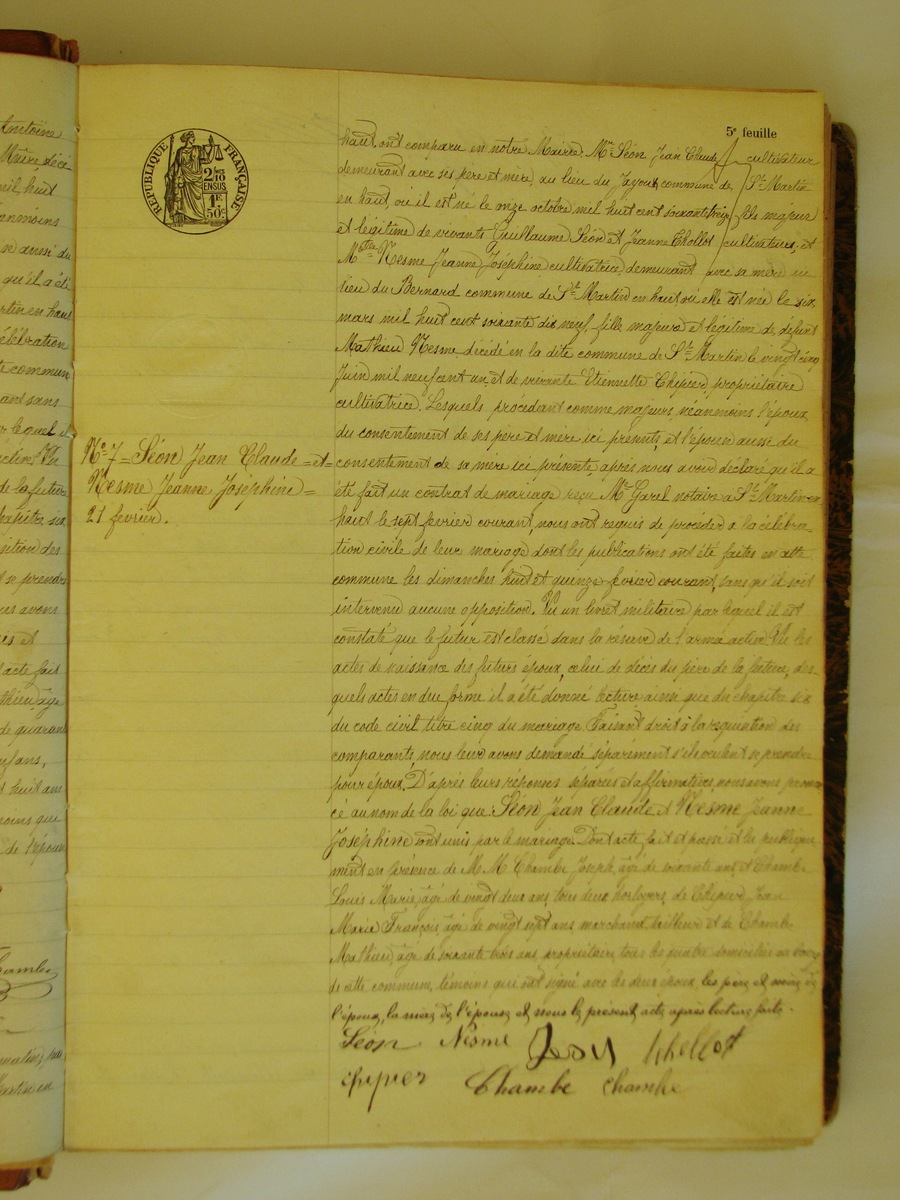 5e feuille
RÉPUBLIQUE FRANÇAISE
2/10 EN SUS
1F 50c
haut, ont comparu en notre Mairie, Mr Séon Jean Claude, cultivateur
demeurant avec ses père et mère, au lieu du commune de St Martin
en haut, où il est né le onze octobre mil huit cent soixante treize, fils majeur
et légitime de vivants Guillaume Séon et Jeanne Thollot cultivateurs, et
Melle Nesme Jeanne Joséphine cultivatrice, demeurant avec sa mère au
lieu du Bernard commune de St Martin en haut où elle est née le six
mars mil huit cent soixante dix neuf, fille majeure et légitime de défunt
Mathieu Nesme, décédé en la dite commune de St Martin le vingt cinq
Juin mil neuf cent un, et de vivante Etiennette Chipier propriétaire
cultivatrice. Lesquels procédant comme majeurs néanmoins l'époux
du consentement de ses père et mère ici présents, et l'épouse aussi du
No 7 = Séon Jean Claude = et =
Nesme Jeanne Joséphine =
21 février.
consentement de sa mère ici présente, après nous avoir déclaré qu'il a
été fait un contrat de mariage reçu Me Garel notaire à St Martin en
haut le sept février courant, nous ont requis de procéder à la célébra-
tion civile de leur mariage dont les publications ont été faites en cette
commune les dimanches huit et quinze février courant, sans qu'il soit
intervenu aucune opposition. Vu un livret militaire par lequel il est
constaté que le futur est classé dans la réserve de l'armée active. Vu les
actes de naissance des futurs époux, celui de décès du père de la future, des-
quels actes en due forme il a été donné lecture ainsi que du chapitre six
du code civil titre cinq du mariage. Faisant droit à la réquisition des
comparants, nous leur avons demandé séparément s'ils veulent se prendre
pour époux. D'après leurs réponses séparées et affirmatives, nous avons pronon
cé au nom de la loi que: Séon Jean Claude et Nesme Jeanne
Joséphine sont unis par le mariage. Dont acte, fait et passé et lu publique
ment en présence de M.M. Chambe Joseph, âgé de soixante ans, et Chambe
Louis Marie, âgé de vingt deux ans, tous deux horlogers, de Chipier Jean
Marie François, âgé de vingt sept ans marchand tailleur et de Chambe
Mathieu, âgé de soixante trois ans, propriétaire, tous les quatre domiciliés au bourg
de cette commune, témoins qui ont signé avec les deux époux, les père et mère de
l'époux, la mère de l'épouse et nous le présent acte après lecture faite.
Séon Nesme Séon Thollot
Chipier Chambe Chambe